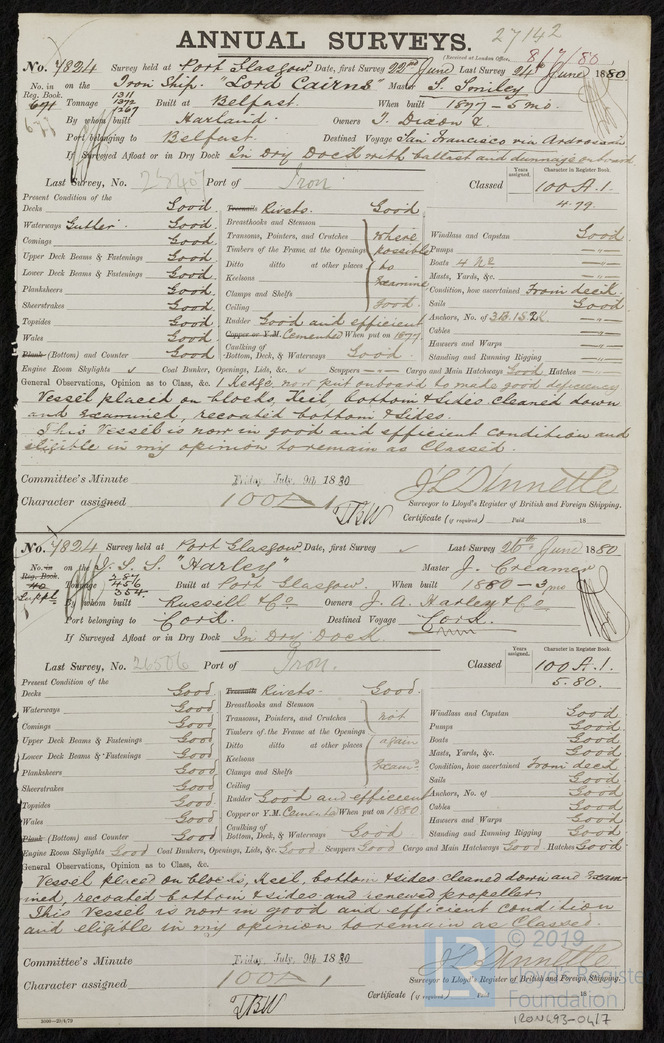 27142
ANNUAL SURVEYS.
(Received at London Office, 8/7/80
No. 7824 Survey held at Port Glasgow Date, first Survey 22nd June Last Survey 24th June 1880
No. in Reg. Book. 671 on the Iron Ship. "Lord Cairns" Master S. Smiley
Tonnage 1311 1372 1267 Built at Belfast. When built 1877 - 5 mo.
By whom built Harland. Owners T. Dixon &
Port belonging to Belfast. Destined Voyage San Francisco via Ardrossan
If Surveyed Afloat or in Dry Dock In Dry Dock with ballast and dunnage onboard
Last Survey, No. Port of Iron. Classed Years assigned. Character in Register Book. 100 A.1. 4.79.
Present Condition of the
Decks Good Treenails Rivets. Good
Waterways Gutter. Good Breasthooks and Stemson
Comings Good Transoms, Pointers, and Crutches where Windlass and Capstan Good
Upper Deck Beams & Fastenings Good Timbers of the Frame at the Openings possible Pumps "
Lower Deck Beams & Fastenings Good Ditto ditto at other places to Boats 4 No "
Plansheers Good Keelsons examine Masts, Yards, &c. "
Sheerstrakes Good Clamps and Shelfs good. Condition, how ascertained From deck.
Topsides Good Ceiling Sails Good
Wales Good Rudder Good and efficient Anchors, No. of 3B. 1S. 2K.
Plank (Bottom) and Counter Good Copper or Y.M. Cemented When put on 1877 Cables "
Caulking of Bottom, Deck, & Waterways Good. Hawsers and Warps "
Standing and Running Rigging "
Engine Room Skylights ✓ Coal Bunker, Openings, Lids, &c. ✓ Scuppers " Cargo and Main Hatchways Good Hatches "
General Observations, Opinion as to Class, &c. 1 Kedge, now put onboard to make good deficiency
Vessel placed on blocks, Keel, bottom & sides cleaned down
and examined, recoated bottom & sides.
This Vessel is now in good and efficient condition and
eligible in my opinion to remain as Classed.
Committee's Minute Friday July. 9th 1880
Character assigned 100 A 1
Surveyor to Lloyd's Register of British and Foreign Shipping.
Certificate (if required) Paid 18
No. 7824 Survey held at Port Glasgow Date, first Survey ✓ Last Survey 26th June 1880
No. in Reg. Book. 40 Suppl. on the I. S. S. "Harley" Master J. Creamer
Tonnage 587 456 354. Built at Port Glasgow. When built 1880 - 3 mo
By whom built Russell & Co Owners J. A. Harley & Co
Port belonging to Cork. Destined Voyage Cork.
If Surveyed Afloat or in Dry Dock In Dry Dock.
Last Survey, No. 26506 Port of Iron. Classed Years assigned. Character in Register Book. 100 A.1. 5.80.
Present Condition of the
Decks Good Treenails Rivets. Good.
Waterways Good Breasthooks and Stemson
Comings Good Transoms, Pointers, and Crutches not Windlass and Capstan Good
Upper Deck Beams & Fastenings Good Timbers of the Frame at the Openings again Pumps Good
Lower Deck Beams & Fastenings Good Ditto ditto at other places Boats Good
Plansheers Good Keelsons Examd Masts, Yards, &c. Good
Sheerstrakes Good Clamps and Shelfs Condition, how ascertained From deck
Topsides Good Ceiling Sails Good
Wales Good Rudder Good and efficient Anchors, No. of Good
Plank (Bottom) and Counter Good Copper or Y.M. Cemented When put on 1880 Cables Good
Caulking of Bottom, Deck, & Waterways Good Hawsers and Warps Good
Standing and Running Rigging Good
Engine Room Skylights Good Coal Bunkers, Openings, Lids, &c. Good Scuppers Good Cargo and Main Hatchways Good Hatches Good
General Observations, Opinion as to Class, &c.
Vessel placed on blocks, Keel, bottom & sides cleaned down and exam-
ined, recoated bottom & sides and renewed propeller
This Vessel is now in good and efficient condition
and eligible in my opinion to remain as Classed.
Committee's Minute Friday July. 9th 1880
Character assigned 100 A 1
Surveyor to Lloyd's Register of British and Foreign Shipping.
Certificate (if required) 18
LR © 2019
Lloyd's Register
Foundation
IRON493-0417